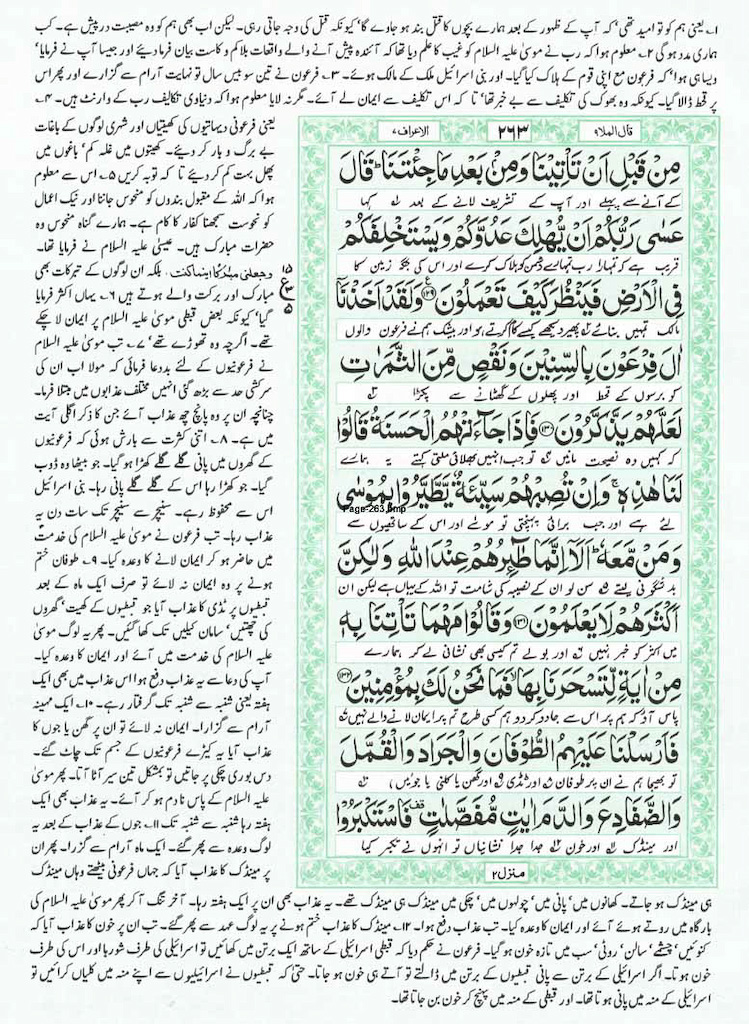 ۱۔ یعنی ہم کو تو امید تھی' کہ آپ کے ظہور کے بعد ہمارے بچوں کا قتل بند ہو جاوے گا' کیونکہ قتل کی وجہ جاتی رہی۔ لیکن اب بھی ہم کو وہ مصیبت در پیش ہے۔ کب
ہماری مدد ہو گی ۲۔ معلوم ہوا کہ رب نے موسیٰ علیہ السلام کو غیب کا علم دیا تھا کہ آئندہ پیش آنے والے واقعات بلا کم و کاست بیان فرما دیئے اور جیسا آپ نے فرمایا'
ویسا ہی ہوا' کہ فرعون مع اپنی قوم کے ہلاک کیا گیا۔ اور بنی اسرائیل ملک کے مالک ہوئے۔ ۳۔ فرعون نے تین سو بیس سال تو نہایت آرام سے گزارے اور پھر اس
پر قحط ڈالا گیا۔ کیونکہ وہ بھوک کی تکلیف سے بے خبر تھا' تا کہ اس تکلیف سے ایمان لے آئے۔ مگر نہ لایا معلوم ہوا کہ دنیاوی تکالیف رب کے وارنٹ ہیں۔ ۴۔
قال الملاء۹ ۲۶۳ الاعراف۷
مِنْ قَبْلِ اَنْ تَاْتِيَنَا وَمِنْۢ بَعْدِ مَا جِئْتَنَا ؕ قَالَ
کے آنے سے پہلے اور آپ کے تشریف لانے کے بعد کہا
عَسٰى رَبُّكُمْ اَنْ يُّهْلِكَ عَدُوَّكُمْ وَيَسْتَخْلِفَكُمْ
قریب ہے کہ تمہارا رب تمہارے دشمن کو ہلاک کرے اور اس کی جگہ زمین کا
فِى الْاَرْضِ فَيَنْظُرَ كَيْفَ تَعْمَلُوْنَ ﴿۱۲۹﴾ وَلَقَدْ اَخَذْنَاۤ
مالک تمہیں بنائے پھر دیکھے کیسے کام کرتے ہو اور بیشک ہم نے فرعون والوں
اٰلَ فِرْعَوْنَ بِالسِّنِيْنَ وَنَقْصٍ مِّنَ الثَّمَرٰتِ
کو برسوں کے قحط اور پھلوں کے گھٹانے سے پکڑا
لَعَلَّهُمْ يَذَّكَّرُوْنَ ﴿۱۳۰﴾ فَاِذَا جَآءَتْهُمُ الْحَسَنَةُ قَالُوْا
کہ کہیں وہ نصیحت مانیں تو جب انہیں بھلائی ملتی کہتے یہ ہمارے
لَنَا هٰذِهٖ ۚ وَاِنْ تُصِبْهُمْ سَيِّئَةٌ يَّطَّيَّرُوْا بِمُوْسٰى
Page-263.bmp
لئے ہے اور جب برائی پہنچتی تو موسٰے اور اس کے ساتھیوں سے
وَمَنْ مَّعَهٗ ؕ اَلَاۤ اِنَّمَا طٰٓئِرُهُمْ عِنْدَ اللّٰهِ وَلٰكِنَّ
بدشگونی لیتے سن لو ان کے نصیبہ کی شامت تو اللہ کے یہاں ہے لیکن ان
اَكْثَرَهُمْ لَا يَعْلَمُوْنَ ﴿۱۳۱﴾ وَقَالُوْا مَهْمَا تَاْتِنَا بِهٖ
میں اکثر کو خبر نہیں اور بولے تم کیسی بھی نشانی لے کر ہمارے
مِنْ اٰيَةٍ لِّتَسْحَرَنَا بِهَا ۙ فَمَا نَحْنُ لَكَ بِمُؤْمِنِيْنَ ﴿۱۳۲﴾
پاس آؤ کہ ہم پر اس سے جادو کرو ہم کسی طرح تم پر ایمان لانے والے نہیں
فَاَرْسَلْنَا عَلَيْهِمُ الطُّوْفَانَ وَالْجَرَادَ وَالْقُمَّلَ
تو بھیجا ہم نے ان پر طوفان اور ٹڈی اور گھن یا کلنی یا جوئیں
وَالضَّفَادِعَ وَالدَّمَ اٰيٰتٍ مُّفَصَّلٰتٍ فَاسْتَكْبَرُوْا
اور مینڈک اور خون جدا جدا نشانیاں تو انہوں نے تکبر کیا
منزل۲
یعنی فرعونی دیہاتیوں کی کھیتیاں اور شہری لوگوں کے باغات
بے برگ و بار کر دیئے۔ کھیتوں میں غلہ کم' باغوں میں
پھل بہت کم کر دیئے تا کہ توبہ کریں ۵۔ اس سے معلوم
ہوا کہ اللہ کے مقبول بندوں کو منحوس جاننا اور نیک اعمال
کو نحوست سمجھنا کفار کا کام ہے۔ ہمارے گناہ منحوس وہ
حضرات مبارک ہیں۔ عیسیٰ علیہ السلام نے فرمایا تھا۔
وجعلنی مبٰرکا اینما کنت۔ بلکہ ان لوگوں کے تبرکات بھی
۱۵ ع ۳ ۵
مبارک اور برکت والے ہوتے ہیں ۶۔ یہاں اکثر فرمایا
گیا' کیونکہ بعض قبطی موسیٰ علیہ السلام پر ایمان لا چکے
تھے۔ اگرچہ وہ تھوڑے تھے' ۷۔ تب موسیٰ علیہ السلام
نے فرعونیوں کے لئے بددعا فرمائی کہ مولا اب ان کی
سرکشی حد سے بڑھ گئی انہیں مختلف عذابوں میں مبتلا فرما۔
چنانچہ ان پر وہ پانچ چھ عذاب آئے جن کا ذکر اگلی آیت
میں ہے۔ ۸۔ اتنی کثرت سے بارش ہوئی کہ فرعونیوں
کے گھروں میں پانی گلے گلے کھڑا ہو گیا۔ جو بیٹھا وہ ڈوب
گیا۔ جو کھڑا رہا اس کے گلے گلے پانی رہا۔ بنی اسرائیل
اس سے محفوظ رہے۔ سنیچر سے سنیچر تک سات دن یہ
عذاب رہا۔ تب فرعون نے موسیٰ علیہ السلام کی خدمت
میں حاضر ہو کر ایمان لانے کا وعدہ کیا۔ ۹۔ طوفان ختم
ہونے پر وہ ایمان نہ لائے تو صرف ایک ماہ کے بعد
قبطیوں پر ٹڈی کا عذاب آیا جو قبطیوں کے کھیت' گھروں
کی چھتیں' سامان کیلیں تک کھا گئیں۔ پھر یہ لوگ موسیٰ
علیہ السلام کی خدمت میں آئے اور ایمان کا وعدہ کیا۔
آپ کی دعا سے یہ عذاب دفع ہوا اس عذاب میں بھی ایک
ہفتہ یعنی شنبہ سے شنبہ تک گرفتار رہے۔ ۱۰۔ ایک مہینہ
آرام سے گزارا۔ ایمان نہ لائے تو ان پر گھن یا جوں کا
عذاب آیا یہ کیڑے فرعونیوں کے جسم تک چاٹ گئے۔
دس بوری چکی پر جاتیں تو بمشکل تین سیر آٹا آتا۔ پھر موسیٰ
علیہ السلام کے پاس نادم ہو کر آئے۔ یہ عذاب بھی ایک
ہفتہ رہا شنبہ سے شنبہ تک ۱۱۔ جوں کے عذاب کے بعد یہ
لوگ وعدہ سے پھر گئے۔ ایک ماہ آرام سے گزرا۔ پھر ان
پر مینڈک کا عذاب آیا کہ جہاں فرعونی بیٹھتے وہاں مینڈک
ہی مینڈک ہو جاتے۔ کھانوں میں' پانی میں' چولہوں میں' چکی میں مینڈک ہی مینڈک تھے۔ یہ عذاب بھی ان پر ایک ہفتہ رہا۔ آخر تنگ آ کر پھر موسیٰ علیہ السلام کی
بارگاہ میں روتے ہوئے آئے اور ایمان کا وعدہ کیا۔ تب عذاب دفع ہوا۔ ۱۲۔ مینڈک کا عذاب ختم ہونے پر یہ لوگ عہد سے پھر گئے۔ تب ان پر خون کا عذاب آیا کہ
کنوئیں' چشمے' سالن' روٹی' سب میں تازہ خون ہو گیا۔ فرعون نے حکم دیا کہ قبطی اسرائیلی کے ساتھ ایک برتن میں کھائیں تو اسرائیلی کی طرف شوربا اور اس کی طرف
خون ہوتا۔ اگر اسرائیلی کے برتن سے پانی قبطیوں کے برتن میں ڈالتے تو آتے ہی خون ہو جاتا۔ حتیٰ کہ قبطیوں نے اسرائیلیوں سے اپنے منہ میں کلیاں کرائیں تو
اسرائیلی کے منہ میں پانی ہوتا تھا۔ اور قبطی کے منہ میں پہنچ کر خون بن جاتا تھا۔